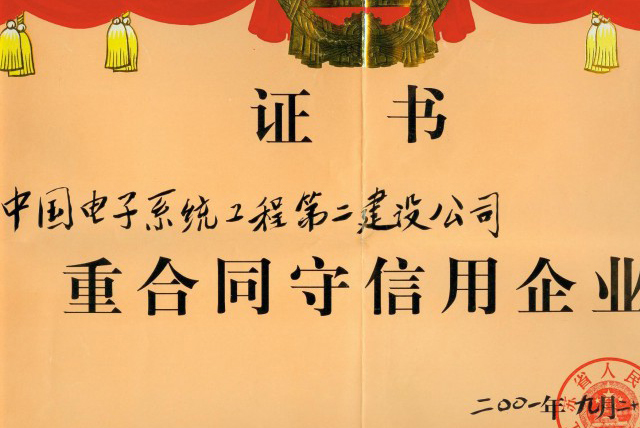 证书
中国电子系统工程第二建设公司
重合同守信用企业
二〇〇一年九月二十
苏省人民